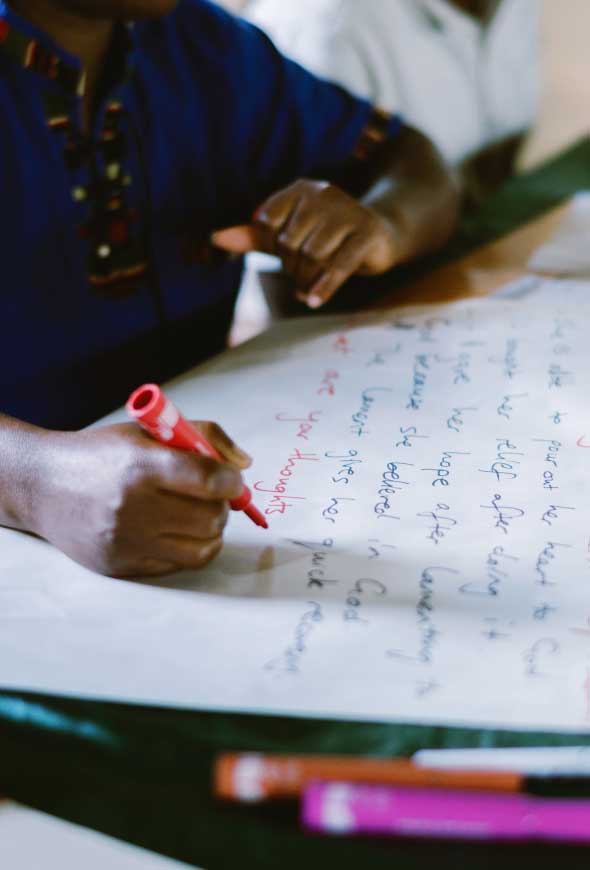 She is able to pour out her heart to God
brought her relief after doing it
gave her hope after lamenting to
God because she believed in God
The lament gives her quick recovery
What are you thoughts